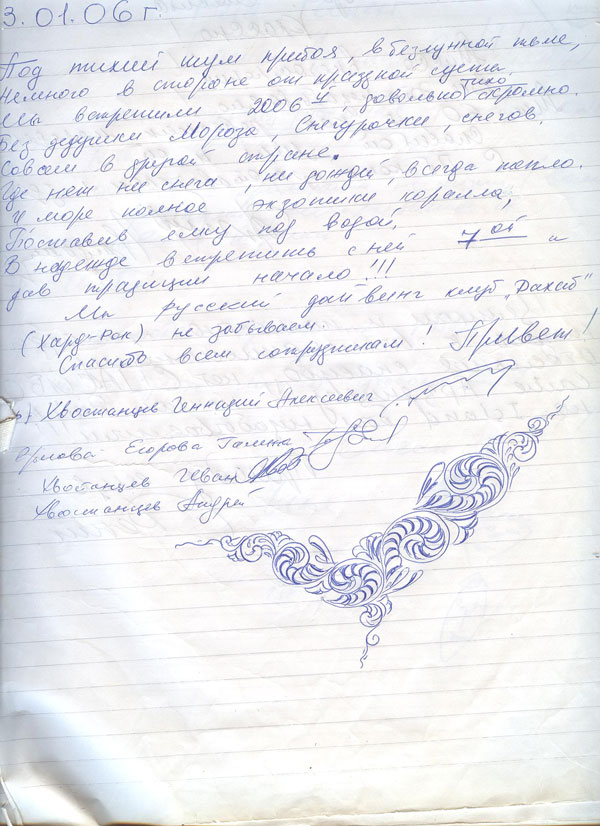 3.01.06 г.
Под тихий шум прибоя, в безлунной тьме,
Немного в стороне от праздной суеты
тихо
Мы встретили 2006 й, довольно скромно.
Без дедушки Мороза, Снегурочки, снегов,
Совсем в другой стране.
Где нет ни снега, ни дождей, всегда тепло.
И море полное экзотики коралла,
Поставив елку под водой,
В надежде встретить с ней 7 ой и
дав традиции начало!!!
Мы русский дайвинг клуб "Дахаб"
(Хард-Рок) не забываем.
Спасибо всем сотрудникам! Привет!
Хвостанцев Геннадий Алексеевич
Орлова Егорова Галина
Хвостанцев Иван
Хвостанцев Андрей